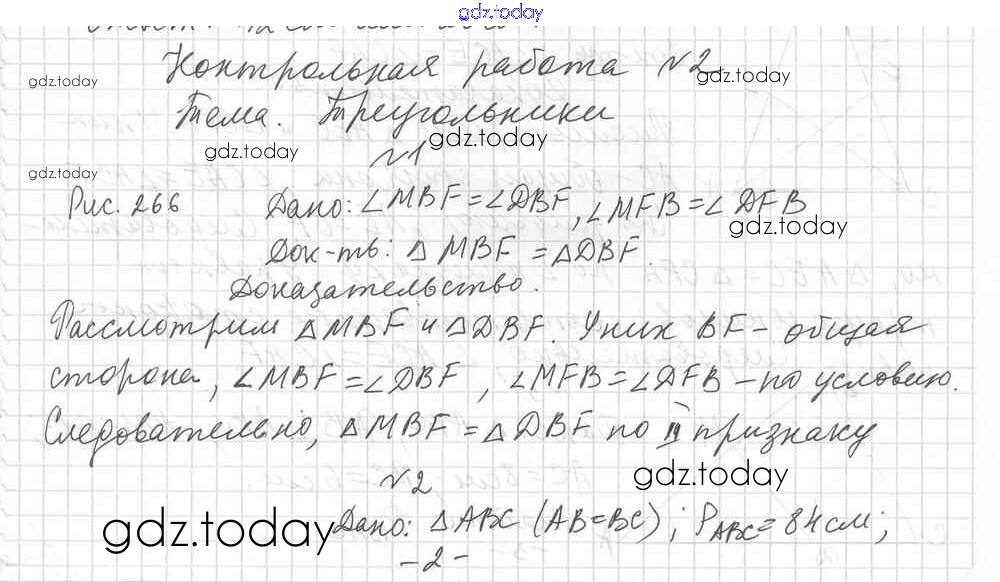 gdz.today
Контрольная работа №2
gdz.today
gdz.today
Тема. Треугольники
gdz.today
gdz.today
№1
gdz.today
Рис. 266 Дано: ∠MBF = ∠DBF, ∠MFB = ∠DFB
gdz.today
Док-ть: △MBF = △DBF.
Доказательство.
Рассмотрим △MBF и △DBF. У них BF – общая
сторона, ∠MBF = ∠DBF, ∠MFB = ∠DFB – по условию.
Следовательно, △MBF = △DBF по II признаку
gdz.today
№2
gdz.today
Дано: △ABC (AB=BC); P_ABC = 84 см;
-2-